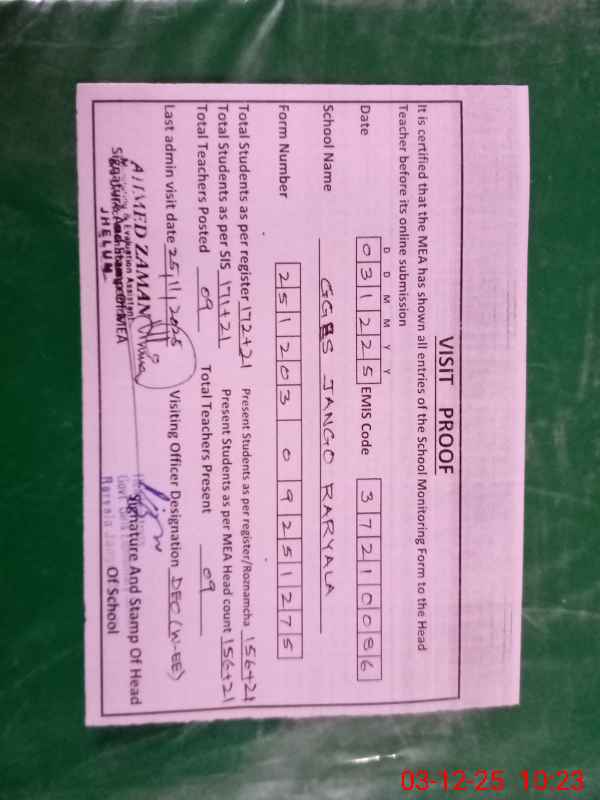 VISIT PROOF
It is certified that the MEA has shown all entries of the School Monitoring Form to the Head
Teacher before its online submission
D D M M Y Y
Date 0 3 1 2 2 5 EMIS Code 3 7 2 1 0 0 8 6
School Name GGES JANGO RARYALA
Form Number 2 5 1 2 0 3 0 9 2 5 1 2 7 5
Total Students as per register 172+21 Present Students as per register/Roznamcha 156+21
Total Students as per SIS 171+21 Present Students as per MEA Head count 156+21
Total Teachers Posted 09 Total Teachers Present 09
Last admin visit date 25/11/2025 Visiting Officer Designation DEO (W-EE)
AHMED ZAMAN
& Evaluation Assistant
JHELUM
Signature And Stamp Of MEA
Signature And Stamp Of Head
Of School
03-12-25 10:23